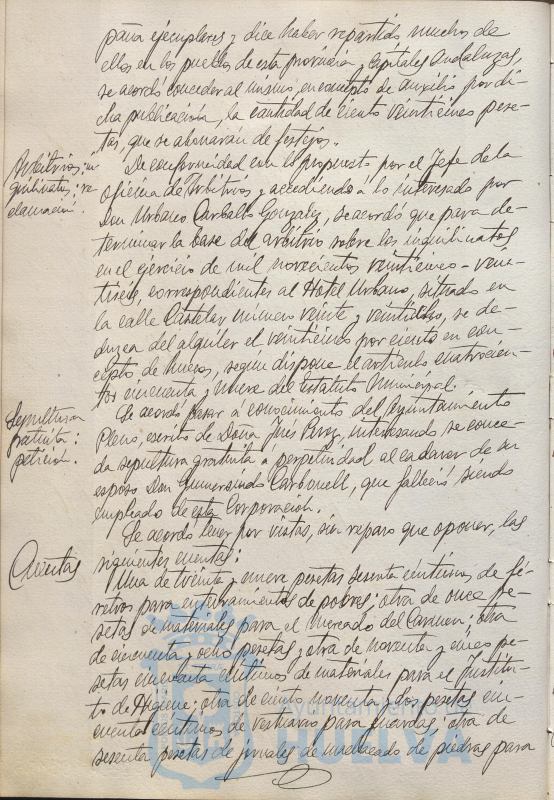 paña ejemplares y dice haber repartido muchos de
ellos en los pueblos de esta provincia y Capitales Andaluzas,
se acordó conceder al mismo, en concepto de auxilio por di-
cha publicación, la cantidad de ciento veinticinco pese-
tas, que se abonarán de festejos.
Arbitrios: in-
quilinatos: re-
clamación.
De conformidad con lo propuesto por el Jefe de la
oficina de Arbitrios y accediendo a lo interesado por
Don Urbano Carballo Gonzalez, se acordó que para de-
terminar la base del arbitrio sobre los inquilinatos
en el ejercicio de mil novecientos veinticinco-vein-
tiseis, correspondientes al Hotel Urbano, situado en
la calle Castelar número veinte y veintidos, se de-
duzca del alquiler el veinticinco por ciento en con-
cepto de huecos, según dispone el artículo cuatrocien-
tos cincuenta y nueve del Estatuto Municipal.
Sepultura
gratuita:
petición.
Se acordó pasar a conocimiento del Ayuntamiento
Pleno, escrito de Doña Inés Perez, interesando se conce-
da sepultura gratuita a perpetuidad al cadaver de su
esposo Don Gumersindo Carbonell, que falleció siendo
empleado de esta Corporación.
Cuentas
Se acordó tener por vistas, sin reparo que oponer, las
siguientes cuentas:
Una de treinta y nueve pesetas sesenta céntimos de fé-
retros para enterramientos de pobres; otra de once pe-
setas de materiales para el Mercado del Carmen; otra
de cincuenta y ocho pesetas y otra de noventa y cinco pe-
setas cincuenta céntimos de materiales para el Institu-
to de Higiene; otra de ciento noventa y dos pesetas cin-
cuenta céntimos de vestuario para guardas; otra de
sesenta pesetas de jornales de machacado de piedras para
Ayuntamiento de
HUELVA